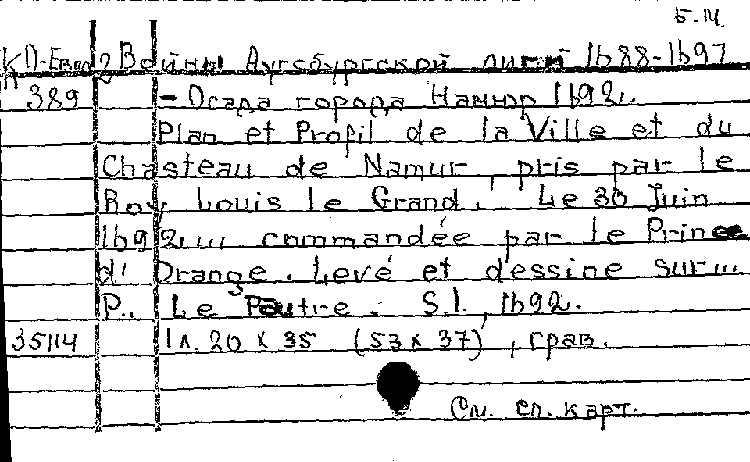 5.14
КП-Евр 2 Войны Аугсбургской лиги 1688-1697
389 - Осада города Намюр 1692.
Plan et Profil de la Ville et du
Chasteau de Namur, pris par le
Roy Louis le Grand. Le 30 Juin
1692 ... commandée par le Prince
d'Orange. Levé et dessine sur ...
P. Le Pautre. S.l., 1692.
35114 1 л. 20 х 35 (53 х 37), грав.
См. сп. карт.